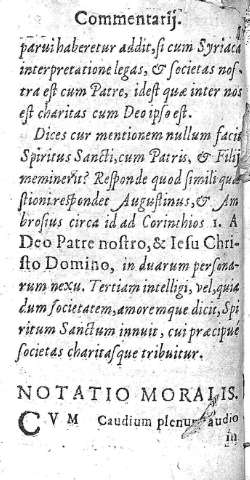 Commentarij.
parui haberetur addit, si cum Syriaca
interpretatione legas, & societas nos-
tra est cum Patre, idest quæ inter nos
est charitas cum Deo ipso est.
Dices cur mentionem nullum facit
Spiritus Sancti, cum Patris, & Filij
meminerit? Responde quod simili quæ
stioni respondet Augustinus, & Am
brosius circa id ad Corinthios 1. A
Deo Patre nostro, & Iesu Chri-
sto Domino, in duarum persona-
rum nexu. Tertiam intelligi, vel, quia
dum societatem, amoremque dicit, Spi
ritum Sanctum innuit, cui præcipue
societas charitasque tribuitur.
NOTATIO MORALIS.
CVM Caudium plenum audio
in